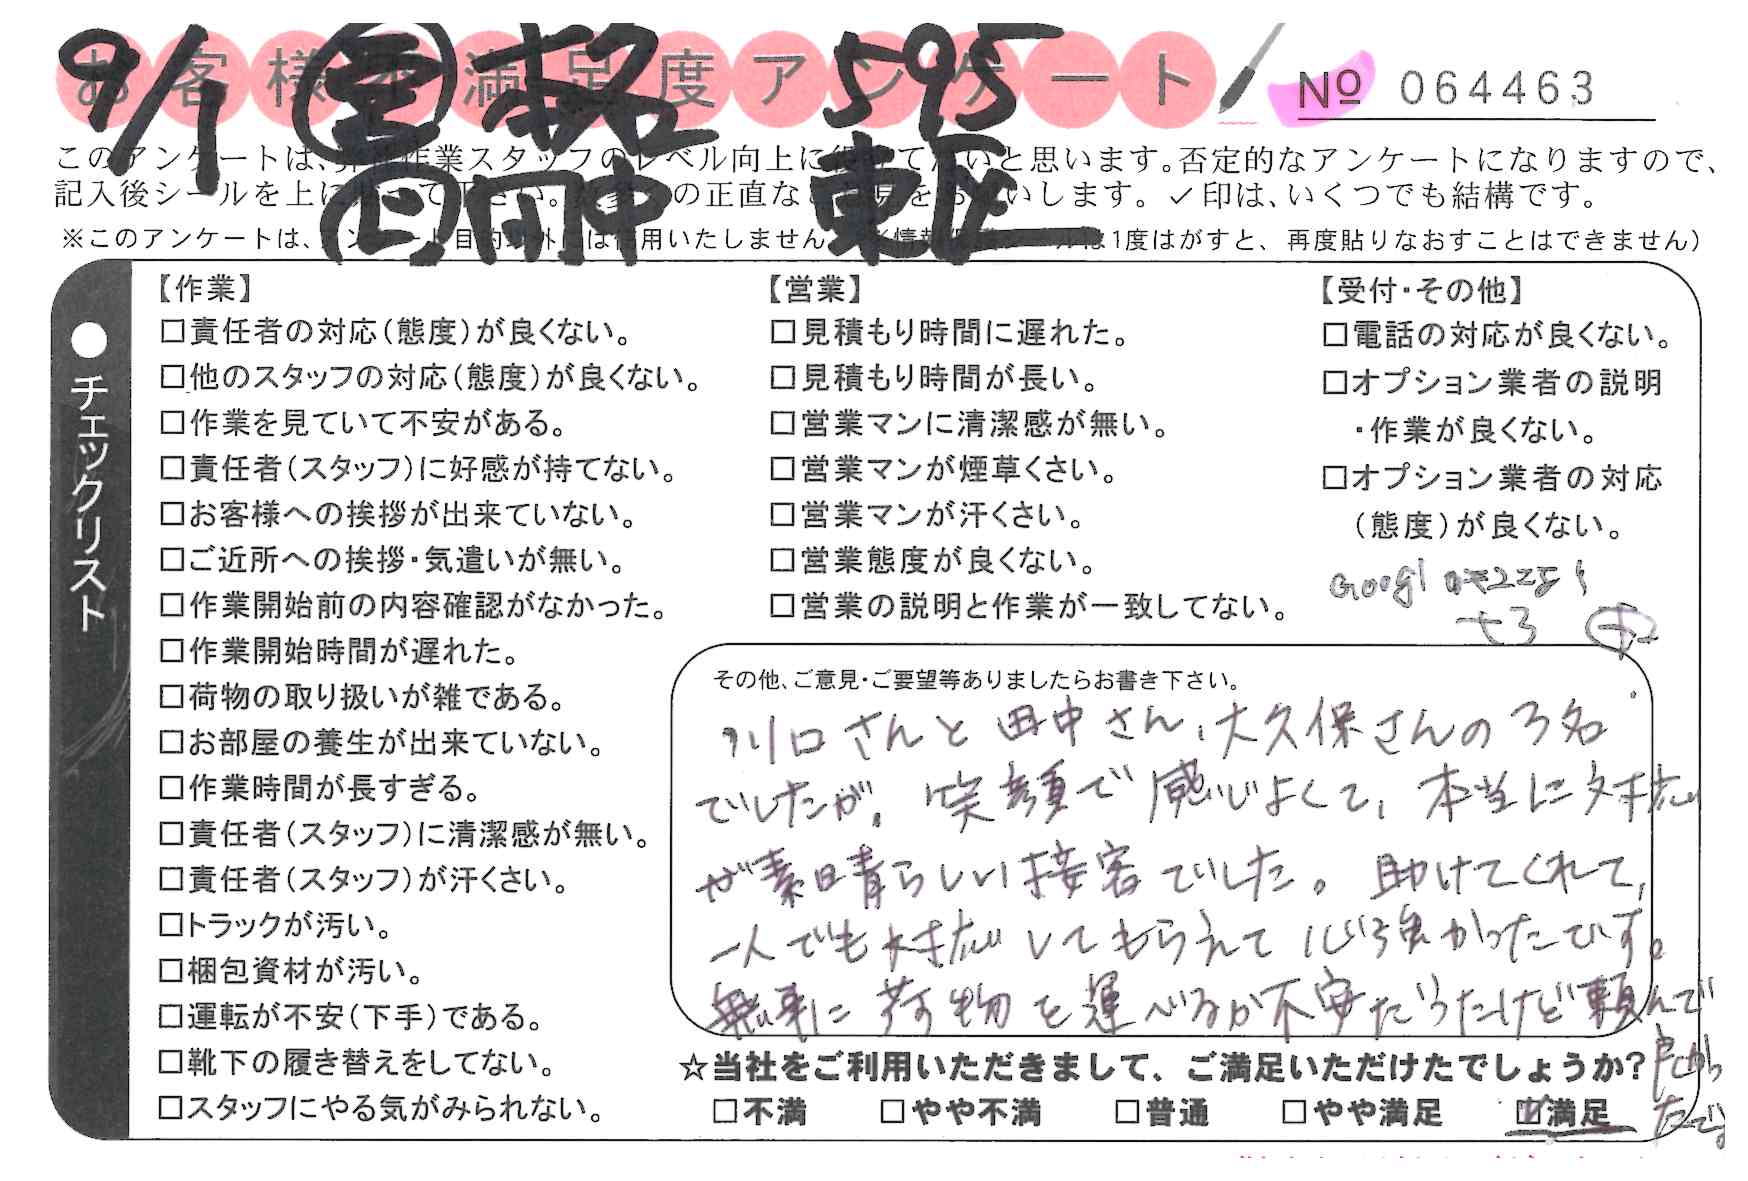 お客様不満足度アンケート
No 064463
9/1 595
田中 東区
このアンケートは、弊社作業スタッフのレベル向上に役立てたいと思います。否定的なアンケートになりますので、
記入後シールを上に貼って下さい。お客様の正直なご意見をお願いします。✓印は、いくつでも結構です。
※このアンケートは、アンケート目的以外には使用いたしません。(情報保護シールは1度はがすと、再度貼りなおすことはできません)
●チェックリスト
【作業】
□責任者の対応(態度)が良くない。
□他のスタッフの対応(態度)が良くない。
□作業を見ていて不安がある。
□責任者(スタッフ)に好感が持てない。
□お客様への挨拶が出来ていない。
□ご近所への挨拶・気遣いが無い。
□作業開始前の内容確認がなかった。
□作業開始時間が遅れた。
□荷物の取り扱いが雑である。
□お部屋の養生が出来ていない。
□作業時間が長すぎる。
□責任者(スタッフ)に清潔感が無い。
□責任者(スタッフ)が汗くさい。
□トラックが汚い。
□梱包資材が汚い。
□運転が不安(下手)である。
□靴下の履き替えをしてない。
□スタッフにやる気がみられない。
【営業】
□見積もり時間に遅れた。
□見積もり時間が長い。
□営業マンに清潔感が無い。
□営業マンが煙草くさい。
□営業マンが汗くさい。
□営業態度が良くない。
□営業の説明と作業が一致してない。
【受付・その他】
□電話の対応が良くない。
□オプション業者の説明
・作業が良くない。
□オプション業者の対応
(態度)が良くない。
その他、ご意見・ご要望等ありましたらお書き下さい。
川口さんと田中さん、大久保さんの3名
でしたが、笑顔で感じよくて、本当に対応
が素晴らしい接客でした。助けてくれて、
一人でも対応してもらえて心強かったです。
無事に荷物を運べるか不安だったけど頼んで
良かっ
たです。
☆当社をご利用いただきまして、ご満足いただけたでしょうか?
□不満 □やや不満 □普通 □やや満足 ☑満足